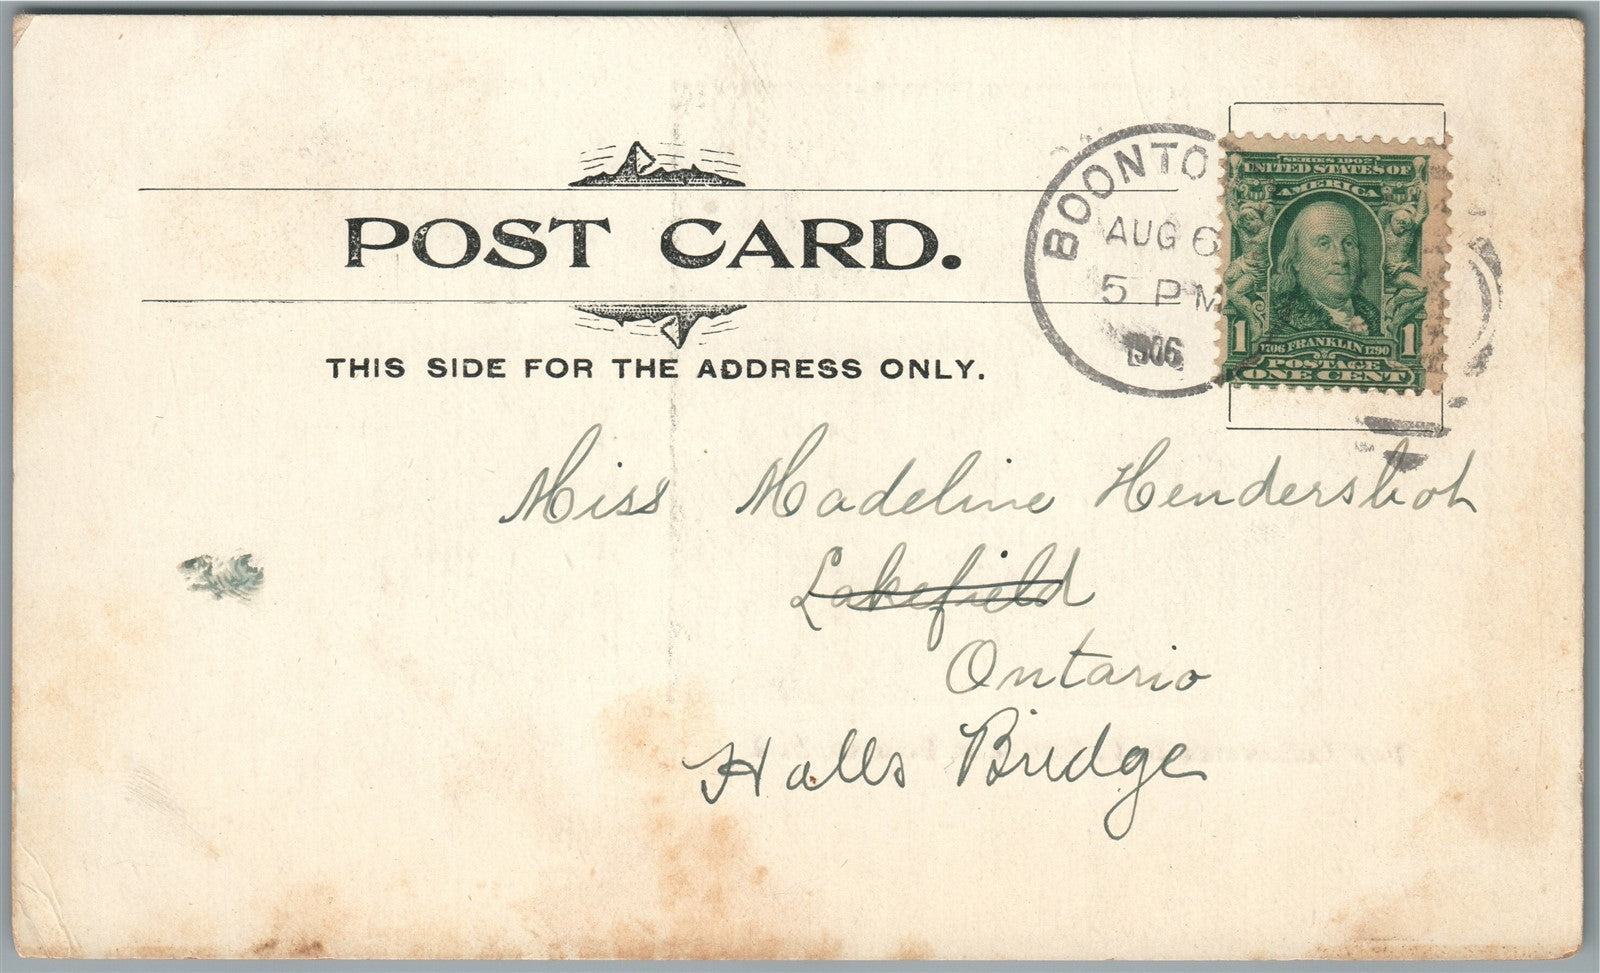 POST CARD.
THIS SIDE FOR THE ADDRESS ONLY.
BOONTO
AUG 6
5 PM
1906
SERIES 1902
UNITED STATES OF
AMERICA
1 1706 FRANKLIN 1790 1
POSTAGE
ONE CENT
Miss Madeline Hendershot
Lakefield
Ontario
Halls Bridge